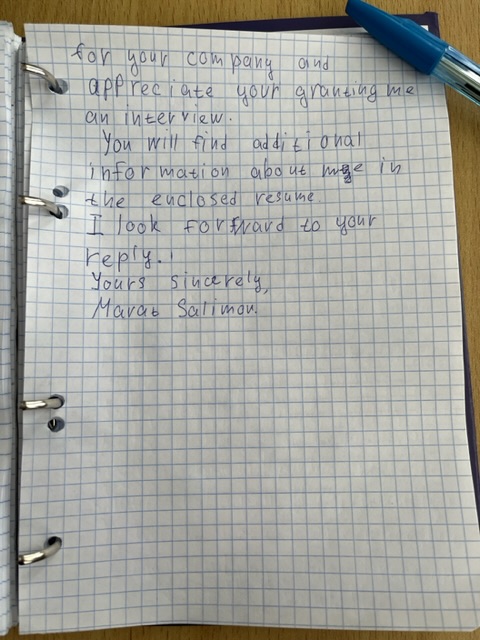 for your company and
appreciate your granting me
an interview.
You will find additional
information about me in
the enclosed resume.
I look forfward to your
reply.
Yours sincerely,
Marat Salimov.